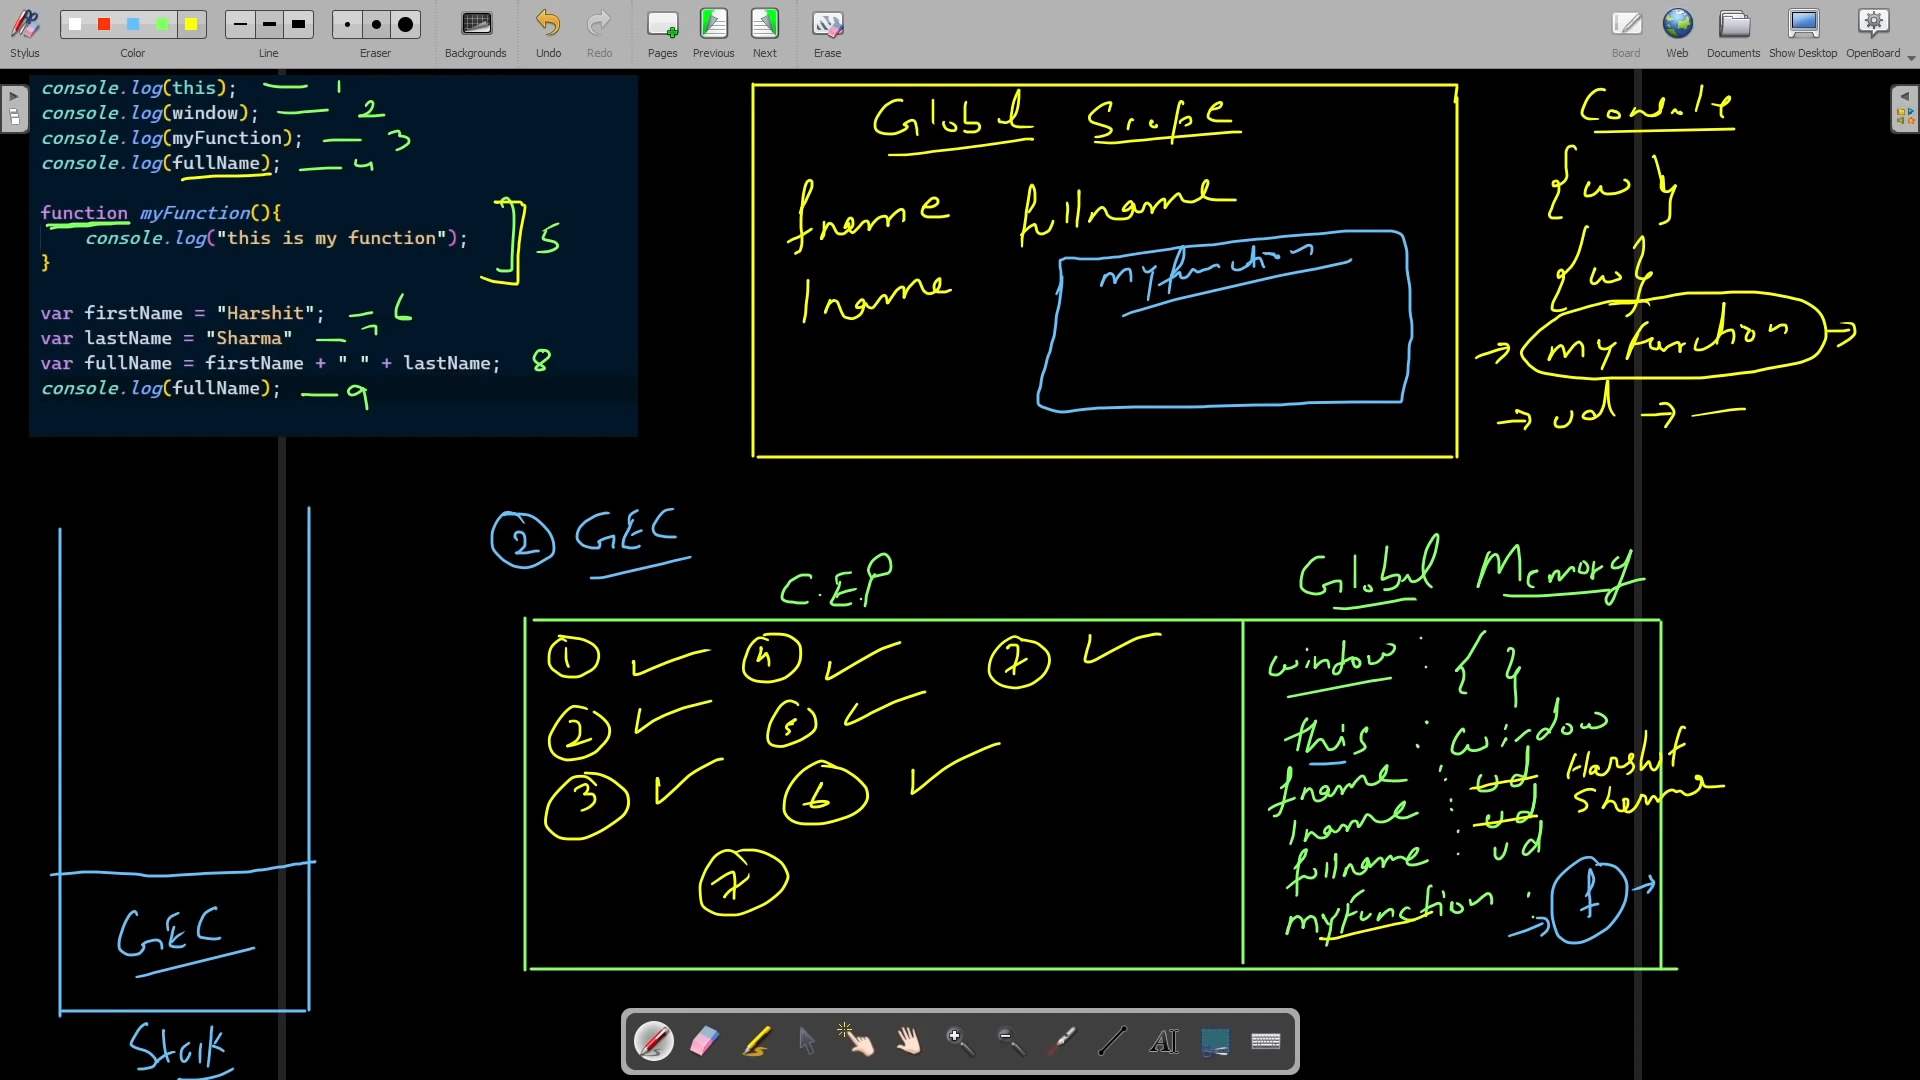 Stylus Color Line Eraser Backgrounds Undo Redo Pages Previous Next Erase Board Web Documents Show Desktop OpenBoard
console.log(this); 1
console.log(window); 2
console.log(myFunction); 3
console.log(fullName); 4
function myFunction(){
console.log("this is my function");
}
5
var firstName = "Harshit"; 6
var lastName = "Sharma" 7
var fullName = firstName + " " + lastName; 8
console.log(fullName); 9
Global Scope
fname fullname
lname
myfunction
Console
{w}
{w}
→ myfunction →
→ ud → —
2 GEC
C.E.P
Global Memory
1 ✓ 4 ✓ 7 ✓
2 ✓ 5 ✓
3 ✓ 6 ✓
7
window : { }
this : window
fname : ud Harshit
lname : ud Sharma
fullname : ud
myFunction : → f →
GEC
Stack
AI